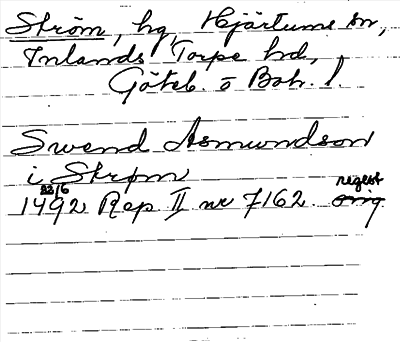 Ström, hg, Hjärtums sn,
Inlands Torpe hd,
Göteb. o Boh. l.
Swend Asmundson
i Strøm
22/6
1492 Rep. II nr 7162. regest
orig